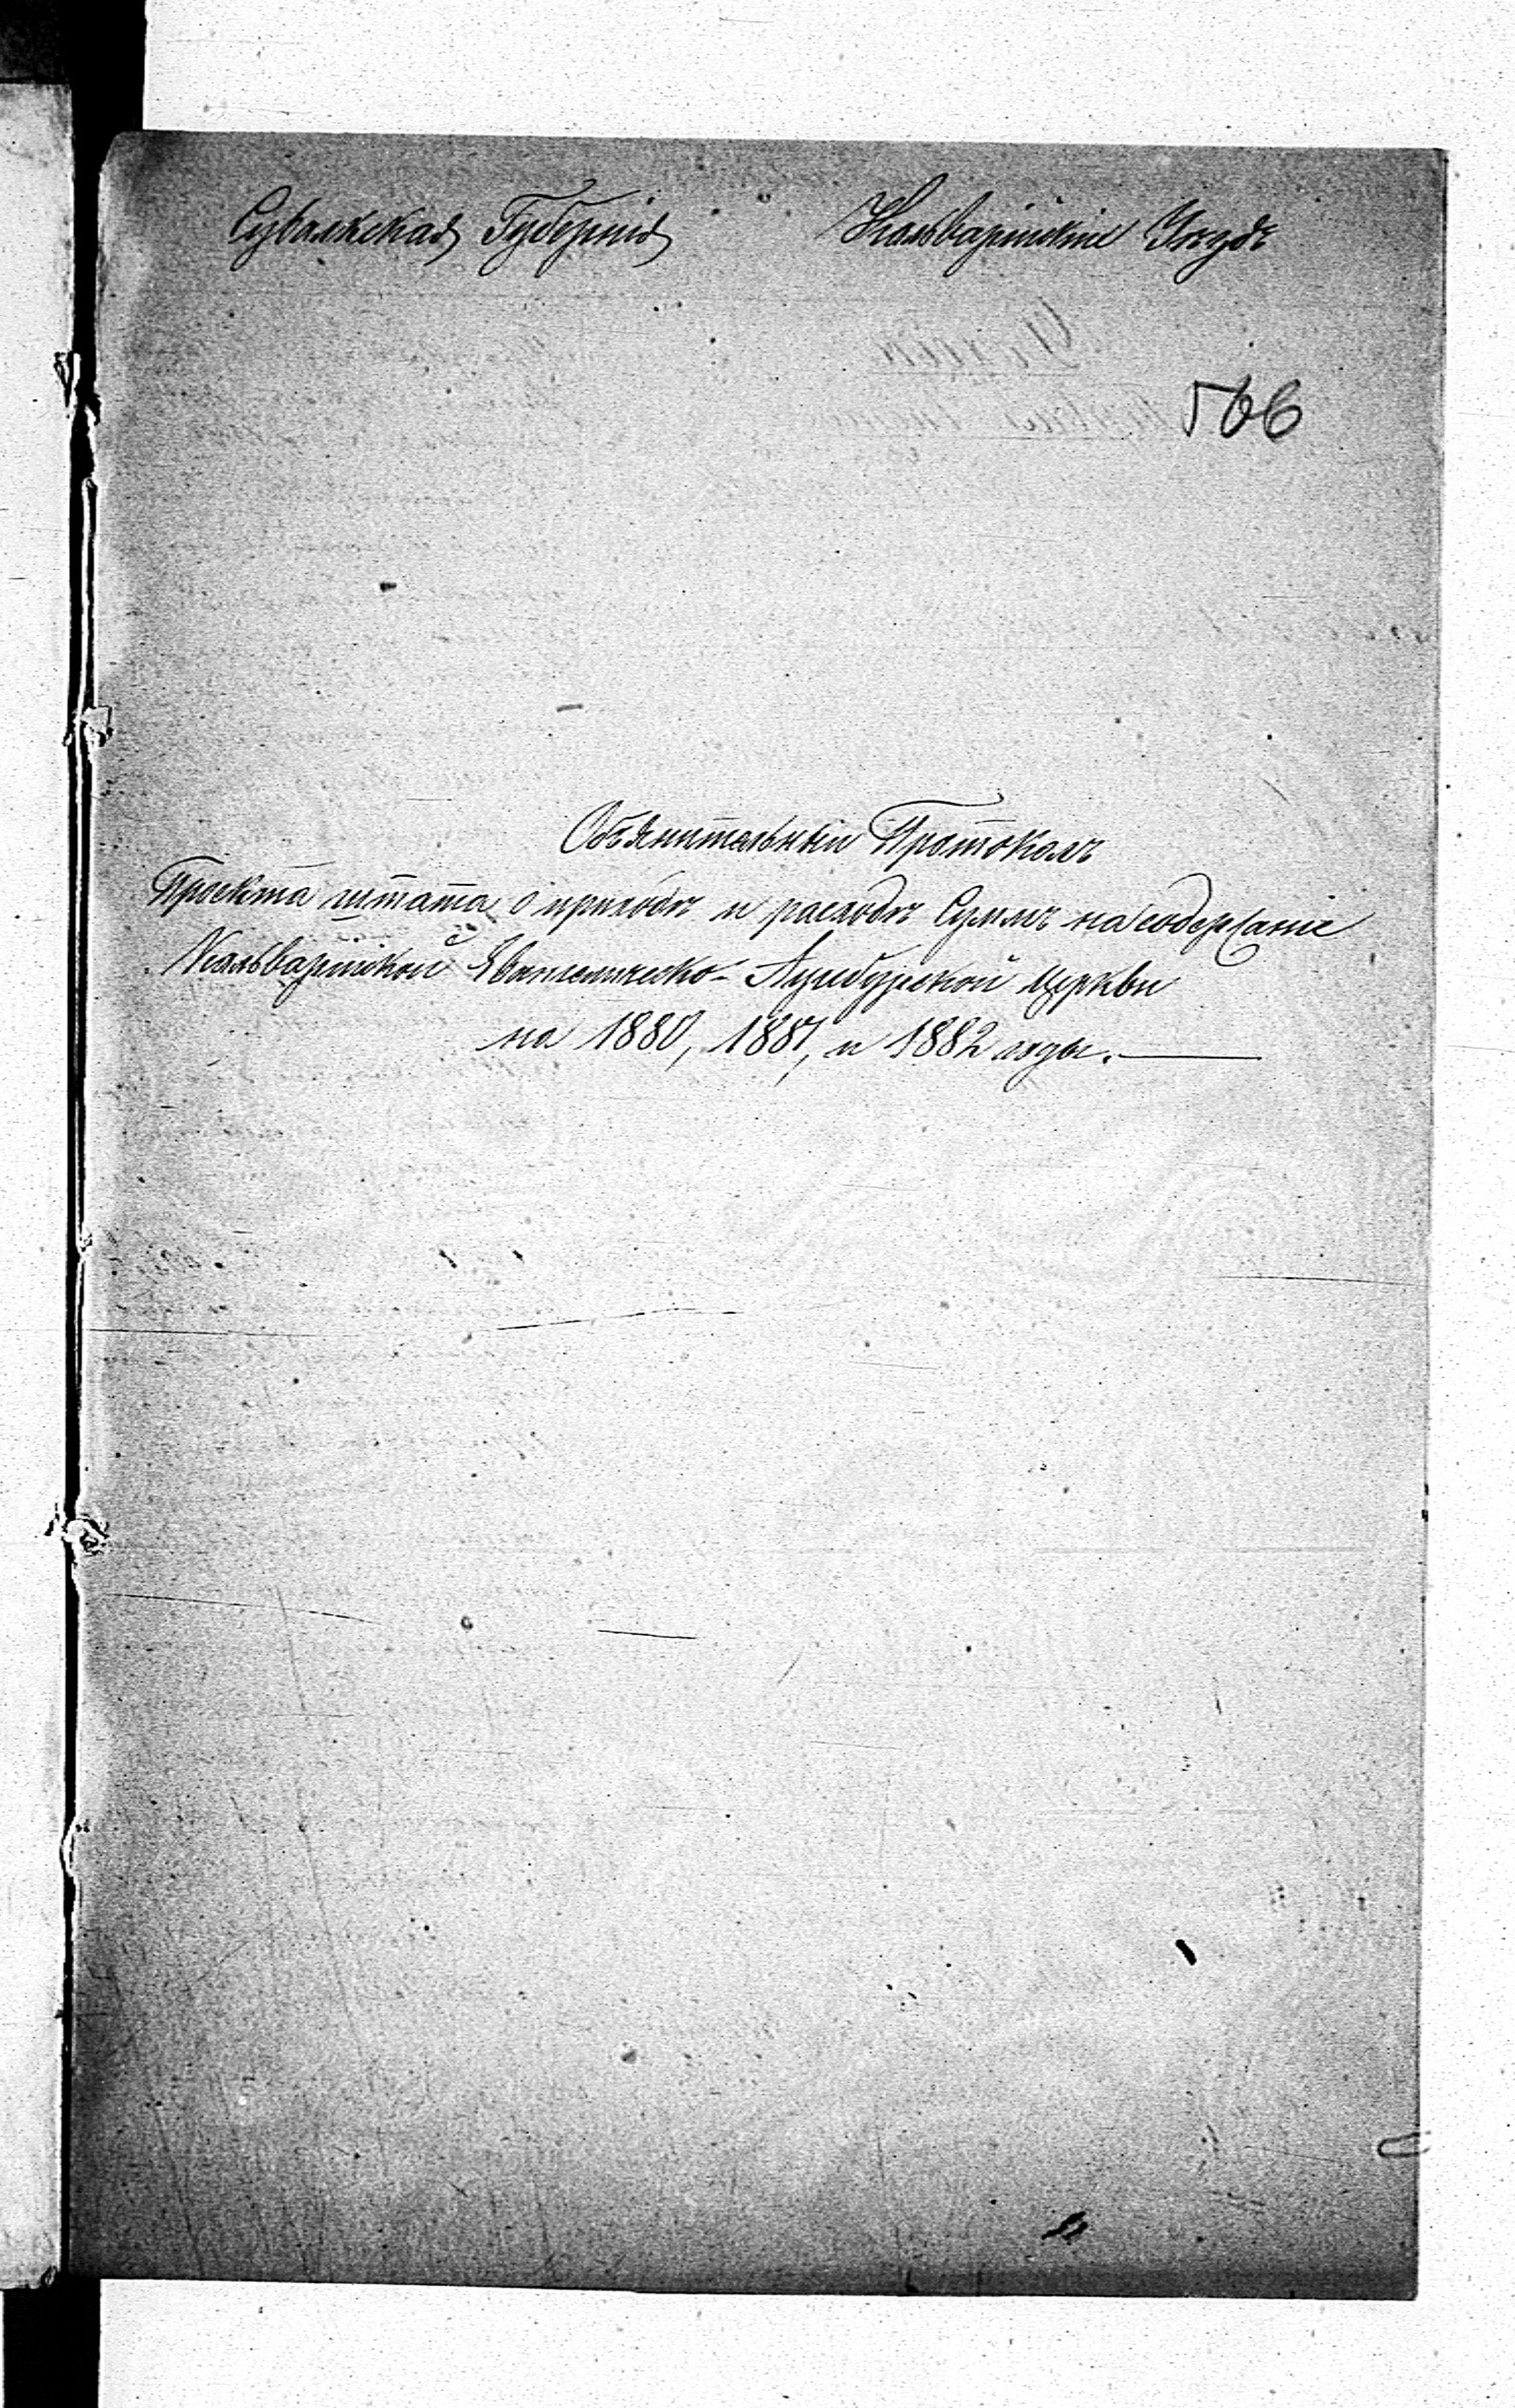 Сувалкская Губернія Кальварійскій Уѣздъ
566
Объяснительный Протоколъ
Проекта штата о приходѣ и расходѣ Суммъ на содержаніе
Кальварійской Евангелическо-Аугсбургской Церкви
на 1880, 1881, и 1882 годы.